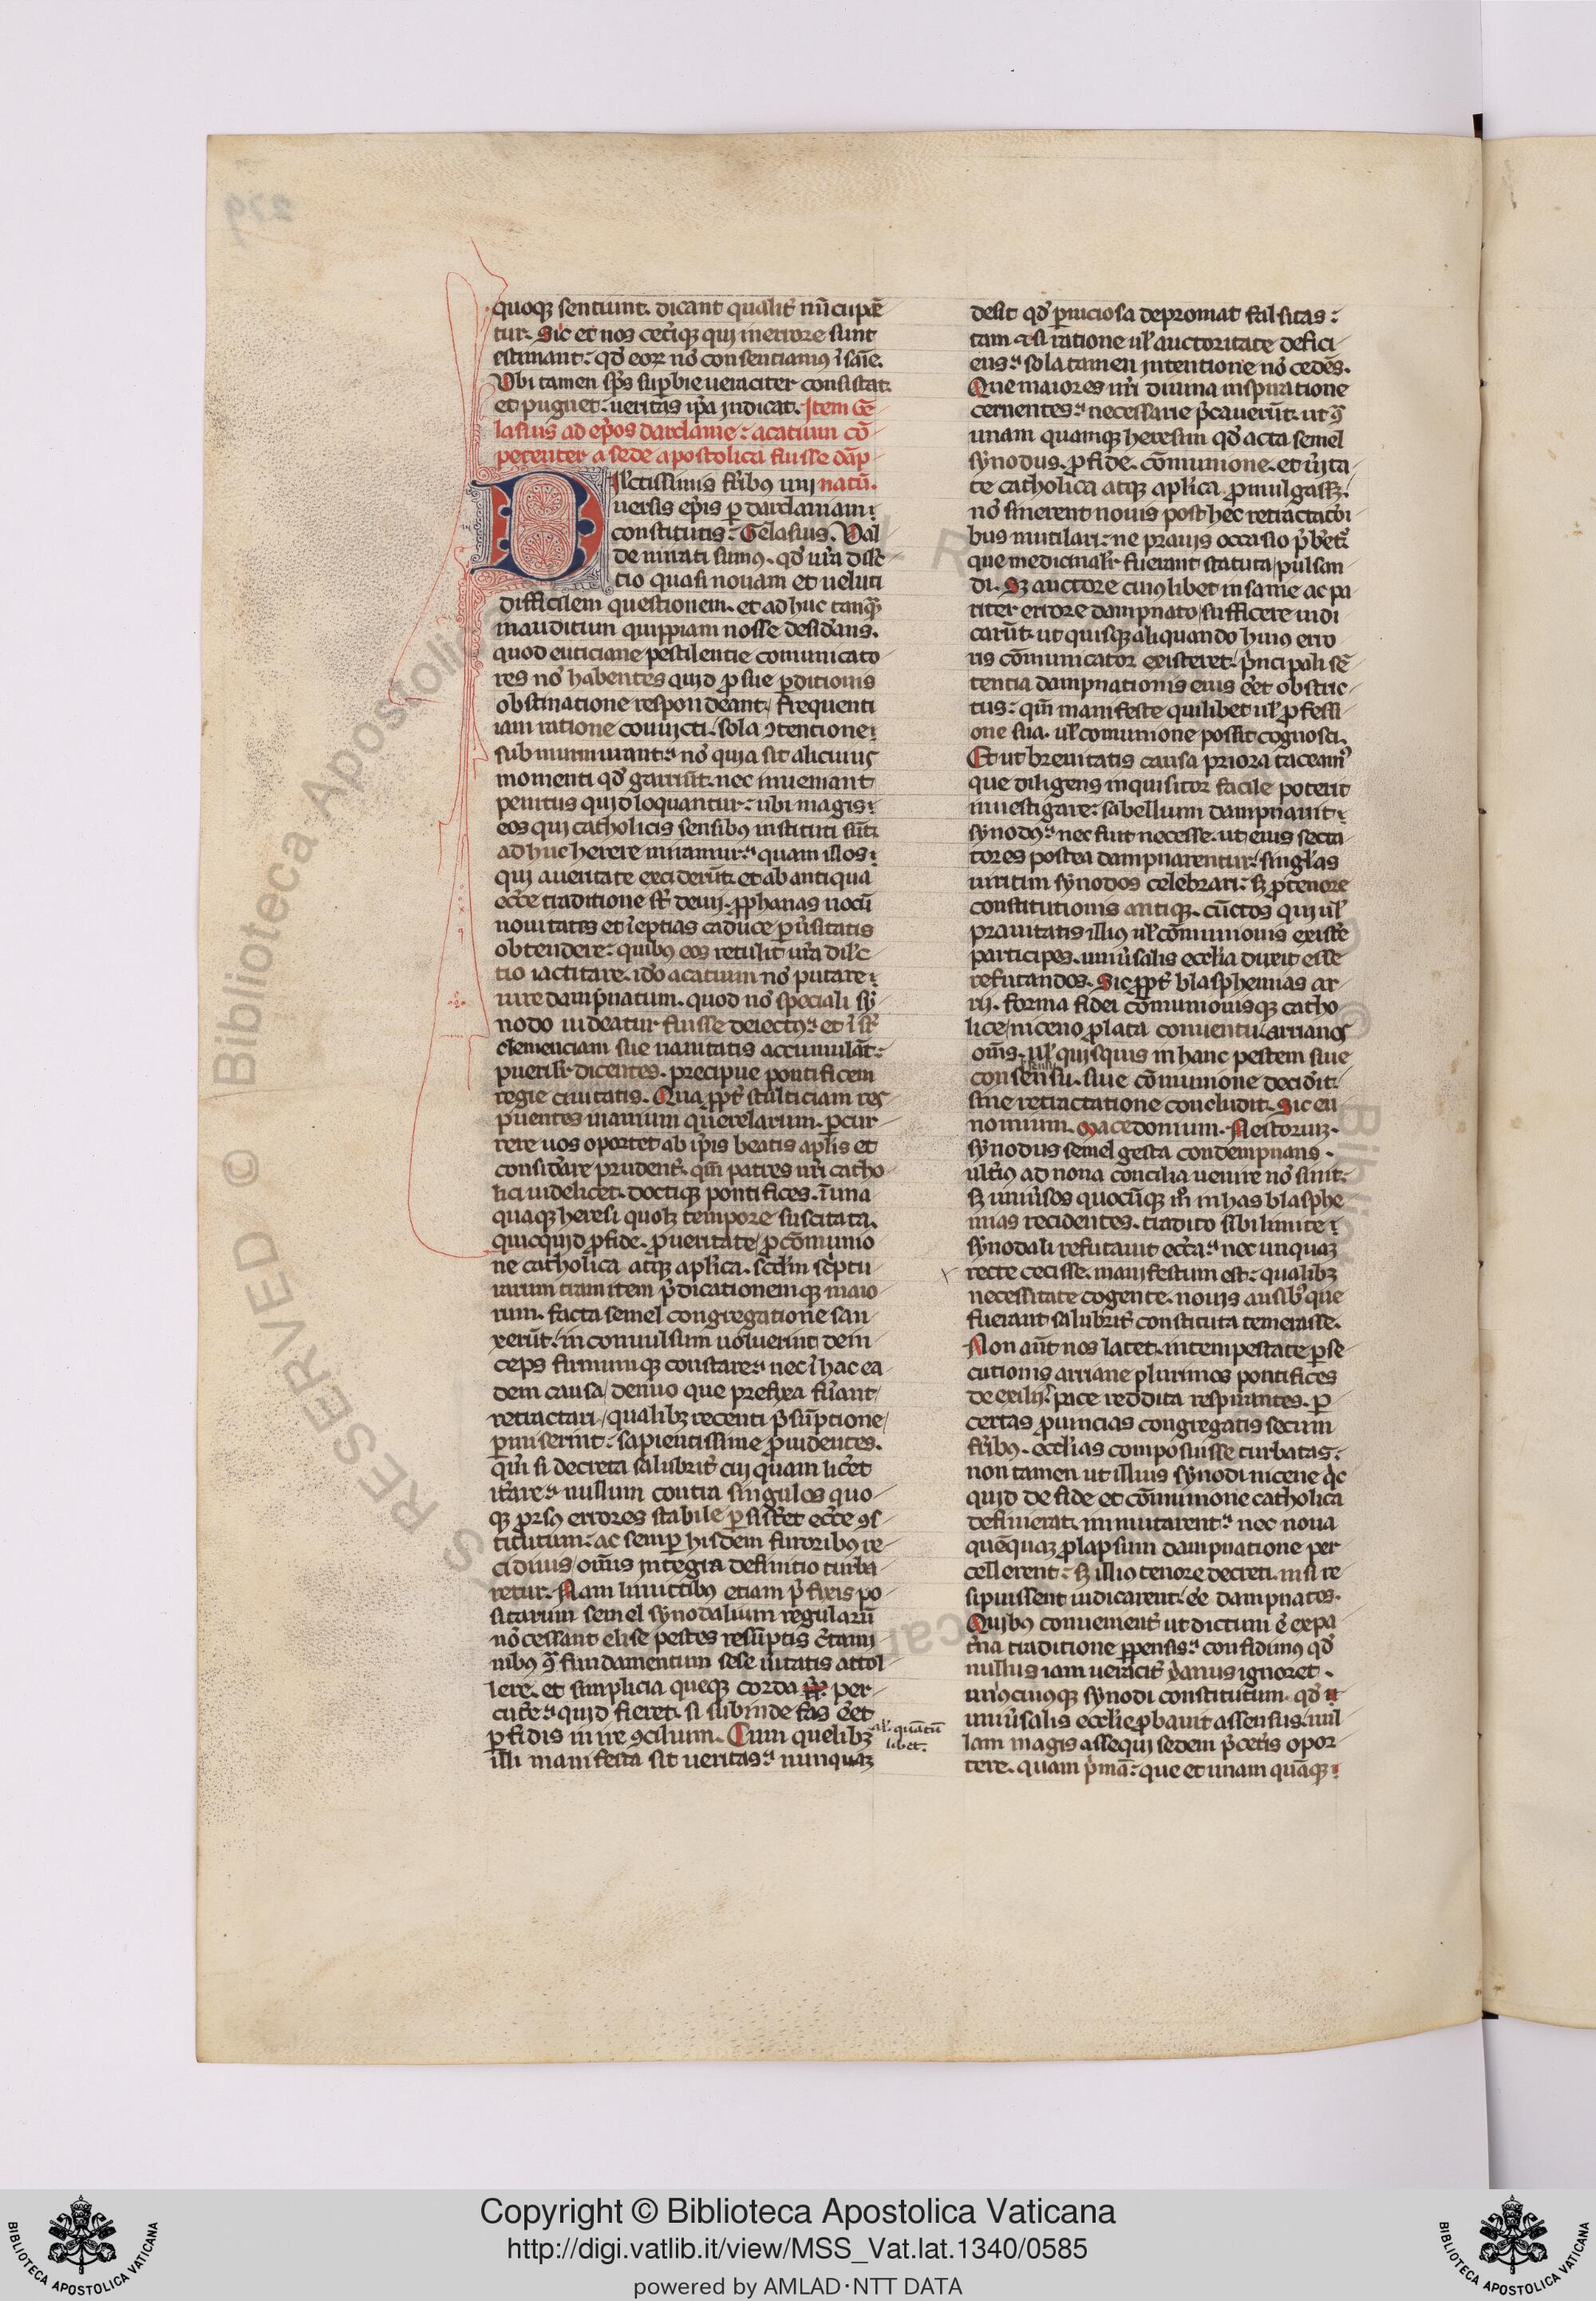 quoq; sentiunt. dicant qualit᷑ nūcupēt
tur. Sic et nos cet᷑iq; qui in errore sunt
estimant: qd᷑ eoꝝ no᷑ consentiamꝰ ĩsanīe.
Vbi tamen sp̄s suꝑbie ueraciter consistat
et pugnet: ueritas ip̄a indicat. Item Ge
lasius ad ep̄os dardanie: acatium cō
petenter a sede apostolica fuisse dāp
natū.
Dil̓ctissimis fr̄ibꝰ uni
uersis ep̄is ꝑ dardaniam
constitutis: Gelasius. Val
de mirati sumꝰ. qd᷑ ur̄a dil̓c
tio quasi nouam et ueluti
difficilem questionem. et adhuc tanq̄
inauditum quippiam nosse desid᷑ans.
quod euticiane pestilentie comunicato
res no᷑ habentes quid ꝓ sue ꝑditionis
obstinatione respondeant, frequenti
iam ratione conuicti. sola ꝯtentione
submurmurant: no᷑ quia sit alicuius
momenti qd᷑ garriūt. nec inueniant
penitus quid loquantur: ubi magis
eos qui catholicis sensibꝰ instituti sūt
adhuc herere miramur: quam illos
qui a ueritate exciderūt. et ab antiqua
ecc̄e traditione sūt deuij. ꝓphanas uocū
nouitates et ĩeptias caduce ꝑu᷑sitatis
obtendere: quibꝰ eos retulit ur̄a dil̓c
tio iactitare. id᷑o acatium no᷑ putare
iure dampnatum. quod no᷑ speciali sy᷑
nodo uideatur fuisse deiectꝰ: et ĩsr̄
clemenciam sue uanitatis accumulāt:
pueril᷑r dicentes. precipue pontificem
regie ciuitatis. Qua ꝓpt᷑ stulticiam res
puentes inanium querelarum. ꝑcur
rere uos oportet ab ip̄is beatis apl̄is et
consid᷑are prudent᷑. qm̄ patres nr̄i catho
lici uidelicet. doctiq; pontifices. ĩ una
quaq; heresi quol; tempore suscitata.
quicquid ꝓ fide. ꝓ ueritate, ꝓ cōmunio
ne catholica atq; apl̓ica. scd̄m sc̓ptu
rarum tramitem p᷑dicationemq; maio
rum. facta semel congregatione san
xerūt: inconuulsum uoluerint dein
ceps firmumq; constare: nec ĩ hac ea
dem causa, denuo que prefixa fu᷑ant
retractari, qualibꝫ recenti p᷑sūptione
ꝑmiserint: sapientissime ꝓuidentes.
qm̄ si decreta salubrit᷑ cuiquam lic᷑et
it᷑are: nullum contra singulos quo
q; ꝓrsꝰ errores stabile ꝑsist᷑et ecc̄e ꝯs
titutum: ac semꝑ hisdem furoribꝰ re
cidiuis, om̄is integra definitio turba
retur. Nam limitibꝰ etiam p᷑fixis po
sitarum semel synodalium regularū
no᷑ cessant elise pestes resūptis c᷑tami
nibꝰ ꝯ᷑ fundamentum sese u᷑itatis attol
lere. et simplicia queq; corda per
cut᷑e: quid fieret. si subinde fas e᷑et
ꝑfidis inire ꝯcilium. Cum quelibꝫ
illi manifesta sit ueritas: nunquaꝫ
al. quātū
libet.
desit qd᷑ ꝑniciosa depromat falsitas:
tam etsi ratione ul᷑ auctoritate defici
ens: sola tamen intentione no᷑ cedēs.
Que maiores nr̄i diuina inspiratione
cernentes: necessarie p᷑cauerūt. ut ꝯ᷑
unam quamq; heresim qd᷑ acta semel
synodus. ꝓ fide. cōmunione. et u᷑ita
te catholica atq; apl̓ica ꝓmulgass;
no᷑ sinerent nouis post hec retractac̄oi
bus mutilari: ne prauis occasio p᷑bet᷑
que medicinal᷑r fuerant statuta, pulsan
di. Sꝫ auctore cuiꝰlibet insanie ac pa
riter errore dampnato, sufficere iudi
carūt. ut quisq; aliquando huiꝰ erro
ris cōmunicator existeret. p᷑ncipali sē
tentia dampnationis eius e᷑et obstric
tus: qm̄ manifeste quilibet ul᷑ ꝓfessi
one sua. ul᷑ comunione possit cognosci.
Et ut breuitatis causa priora taceamꝰ
que diligens inquisitor facile poterit
inuestigare: sabellium dampnauit
synodꝰ: nec fuit necesse. ut eius secta
tores postea dampnarentur, singl̓as
uiritim synodos celebrari: sꝫ ꝓ tenore
constitutionis antiq;. cūctos qui ul᷑
prauitatis illiꝰ ul᷑ cōmunionis existe᷑
participes. uniu᷑salis ecc̄lia duxit esse
refutandos. Sic ꝓpt᷑ blasphemias ar
rij. forma fidei cōmunionisq; catho
lice, niceno ꝓlata conuentu. arrianos
om̄s. ul᷑ quisquis in hanc pestem siue
consensu. siue cōmunione decid᷑it
sine retractatione concludit. Sic eu
nomium. Macedonium. Nestoriuꝫ.
synodus semel gesta condempnans.
ult᷑iꝰ ad noua concilia uenire no᷑ sinit:
sꝫ uniu᷑sos quocūq; m̄ in has blasphe
mias recidentes. tradito sibi limite
synodali refutauit ecc̄a: nec unquaꝫ
recte cecisse. manifestum est: qualibꝫ
necessitate cogente. nouis ausibꝰ que
fuerant salubrit᷑ constituta temerasse.
Non aūt nos latet. in tempestate ꝑse
cutionis arriane plurimos pontifices
de exilijs pace reddita respirantes. ꝑ
certas ꝓuincias congregatis secum
fr̄ibꝰ. ecc̄lias composuisse turbatas:
non tamen ut illius synodi nicene q̓c
quid de fide et cōmunione catholica
definierat. inmutarent: nec noua
quēquaꝫ ꝓlapsum dampnatione per
cellerent: sꝫ illiꝰ tenore decreti. nisi re
sipuissent iudicarent e᷑e dampnatos.
Quibꝰ conuenient᷑ ut dictum ē ex pa
t᷑na traditione ꝑpensis: confidimꝰ qd᷑
nullus iam ueracit᷑ x᷑anus ignoret.
uniꝰcuiꝰq; synodi constitutum. qd᷑
uniu᷑salis ecc̄lie ꝓbauit assensus. nul
lam magis assequi sedem p᷑ cet᷑is opor
tere. quam p᷑mā: que et unam quāq;